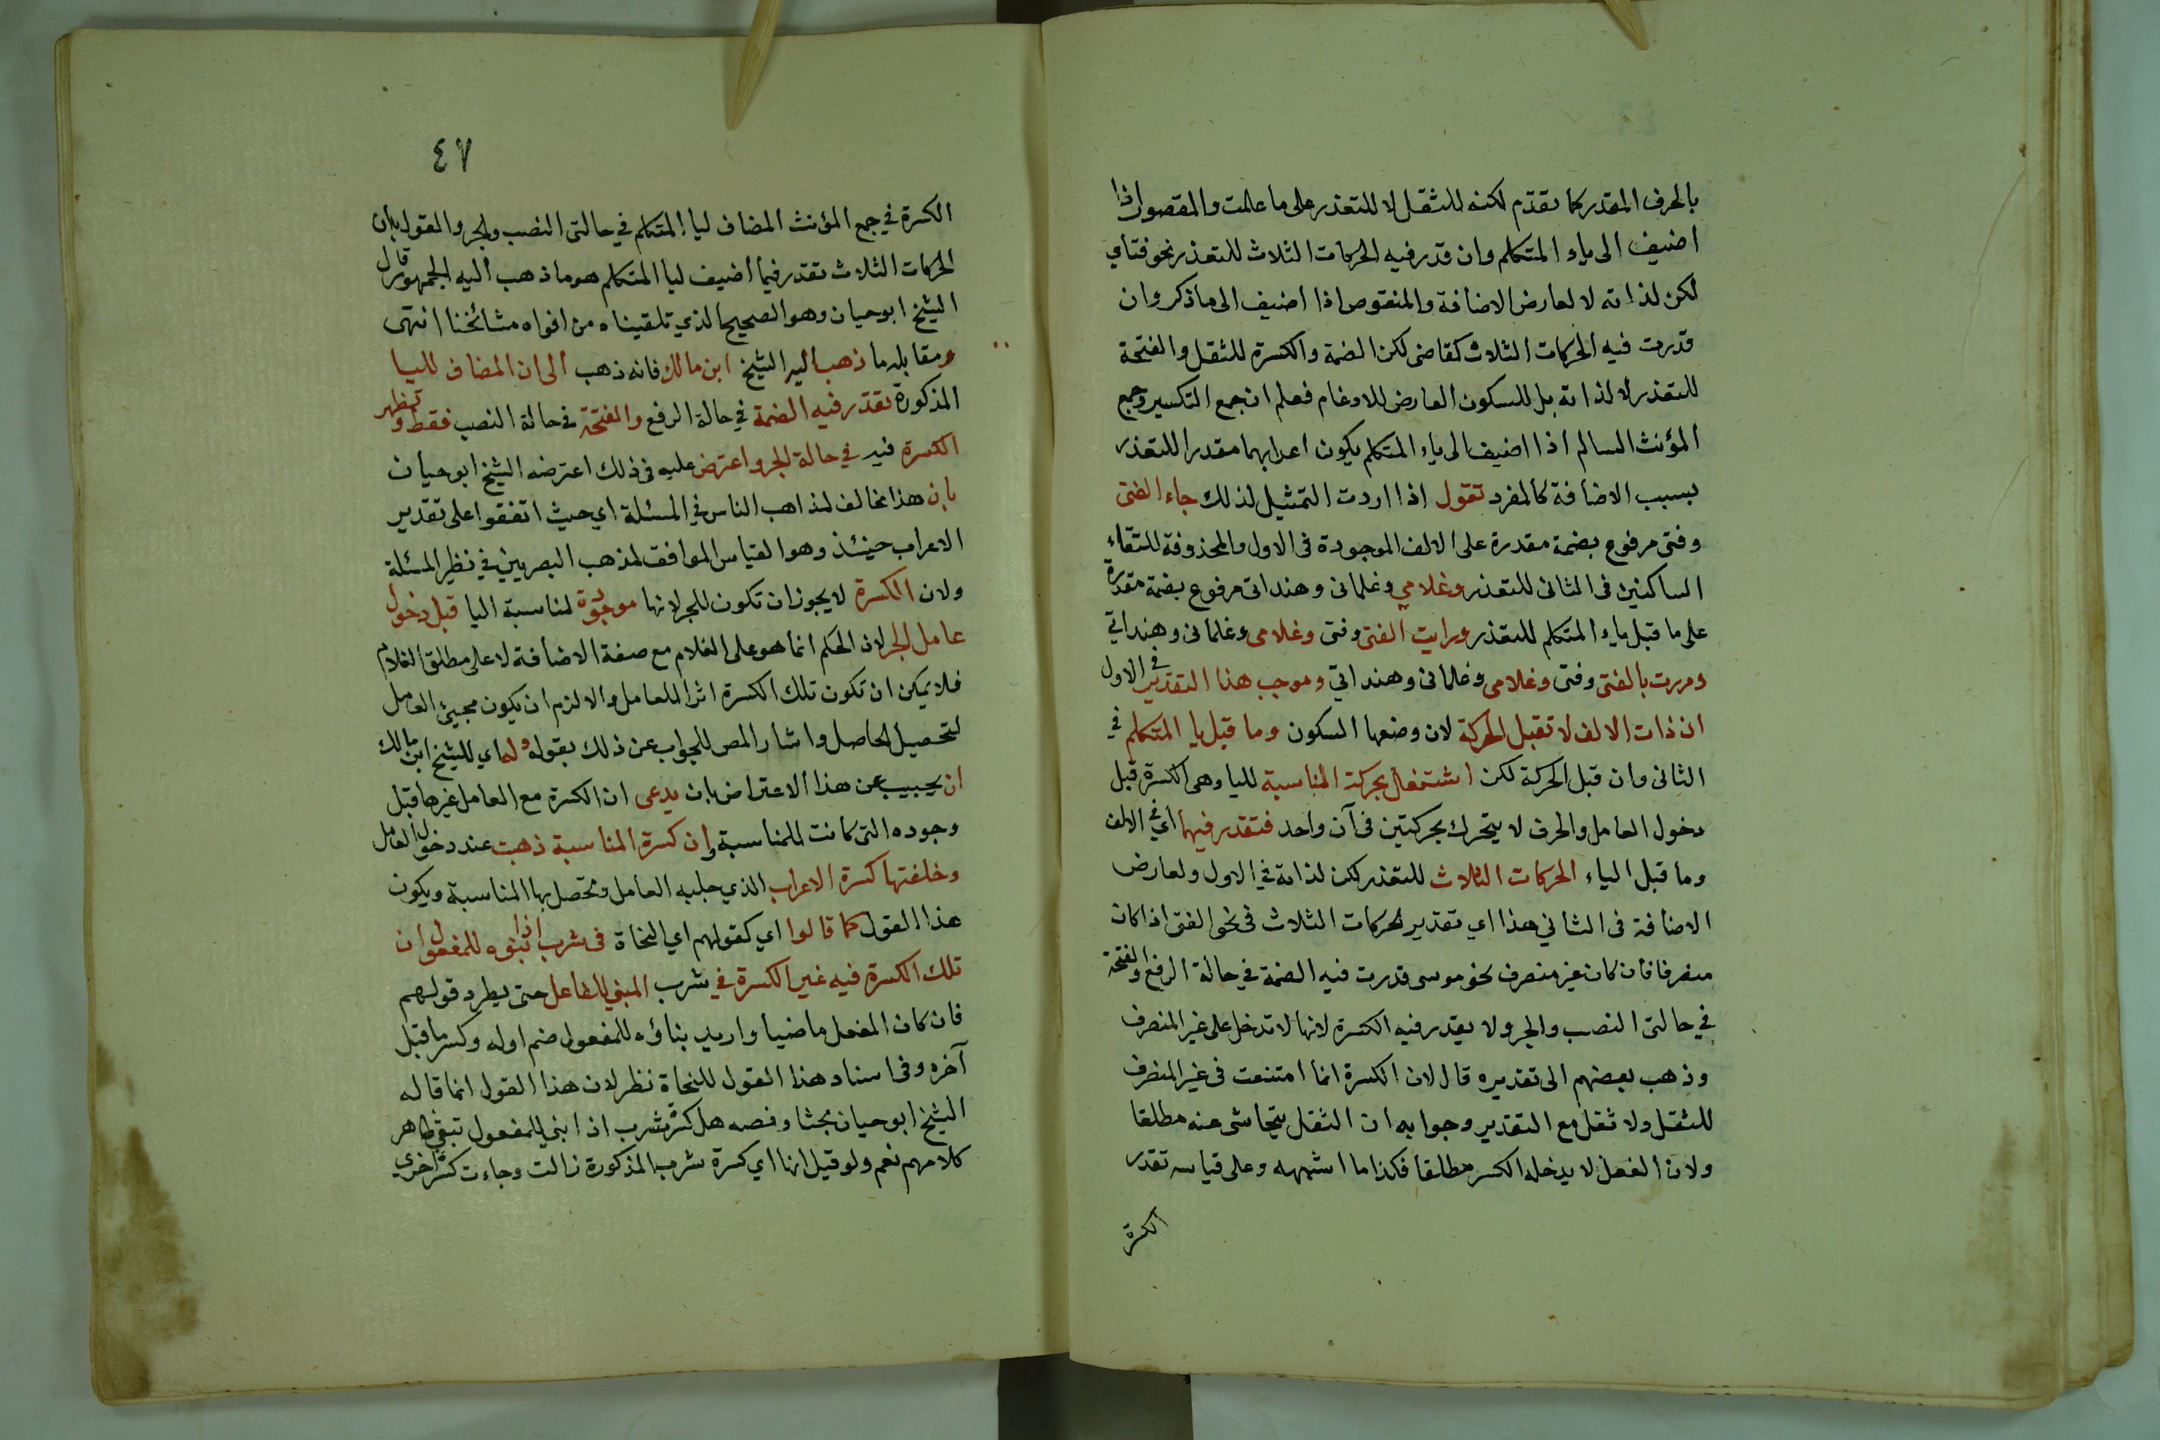 بالحرف المقدر كما تقدم لكنه للثقل لا للتعذر على ما علمت والمقصور اذا
اضيف الى ياء المتكلم وان قدر فيه الحركات الثلاث للتعذر نحو فتاي
لكن لذاته لا لعارض الاضافة والمنقوص اذا اضيف الى ما ذكر وان
قدرت فيه الحركات الثلاث كقاضى لكن الضمة والكسرة للثقل والفتحة
للتعذر لا لذاته بل للسكون العارض للادغام فعلم ان جمع التكسير وجمع
المؤنث السالم اذا اضيف الى ياء المتكلم يكون اعرابهما مقدرا للتعذر
بسبب الاضافة كالمفرد تقول اذا اردت التمثيل لذلك جاء الفتى
وفتى مرفوع بضمة مقدرة على الالف الموجودة فى الاول والمحذوفة للتقاء
الساكنين فى الثانى للتعذر وغلامي وغلمانى وهنداتى مرفوع بضمة مقدرة
على ما قبل ياء المتكلم للتعذر ورايت الفتى وفتى وغلامى وغلمانى وهنداتي
ومررت بالفتى وفتى وغلامى وغلمانى وهنداتي وموجب هذا التقدير في الاول
ان ذات الالف لا تقبل الحركة لان وضعها السكون وما قبل يا المتكلم في
الثانى وان قبل الحركة لكن اشتغال بحركة المناسبة لليا وهى الكسرة قبل
دخول العامل والحرف لا يتحرك بحركتين فى آن واحد فتقدر فيهما أي في الالف
وما قبل الياء الحركات الثلاث للتعذر لكن لذاته في الاول ولعارض
الاضافة فى الثاني هذا اي تقدير الحركات الثلاث فى نحو الفتى اذا كان
منصرفا فان كان غير منصرف نحو موسى قدرت فيه الضمة في حالة الرفع والفتحة
في حالتى النصب والجر ولا يقدر فيه الكسرة لانها لا تدخل على غير المنصرف
وذهب بعضهم الى تقديره قال لان الكسرة انما امتنعت فى غير المنصرف
للثقل ولا ثقل مع التقدير وجوابه ان الثقل يتحاشى عنه مطلقا
ولان الفعل لا يدخله الكسر مطلقا فكذا ما اشبهه وعلى قياسه تقدر
الكسرة
٤٧
الكسرة في جمع المؤنث المضاف ليا المتكلم في حالتى النصب والجر والمقول بان
الحركات الثلاث تقدر فيما أضيف ليا المتكلم هو ما ذهب اليه الجمهور قال
الشيخ ابو حيان وهو الصحيح الذي تلقيناه من افواه مشائخنا انتهى
ومقابله ما ذهب اليه الشيخ ابن مالك فانه ذهب الى ان المضاف لليا
المذكورة تقدر فيه الضمة في حالة الرفع والفتحة في حالة النصب فقط وتظهر
الكسرة فيه في حالة الجر واعترض عليه فى ذلك اعترضه الشيخ ابو حيان
بان هذا مخالف لمذاهب الناس في المسئلة اي حيث اتفقوا على تقدير
الاعراب حينئذ وهو القياس الموافق لمذهب البصريين في نظير المسئلة
ولان الكسرة لا يجوز ان تكون للجر لانها موجودة لمناسبة اليا قبل دخول
عامل الجر لان الحكم انما هو على الغلام مع صفة الاضافة لا على مطلق الغلام
فلا يمكن ان تكون تلك الكسرة اثرا للعامل والا لزم ان يكون مجيئ العامل
لتحصيل الحاصل واشار المص للجواب عن ذلك بقوله وله اي للشيخ ابن مالك
ان يجيب عن هذا الاعتراض بان يدعى ان الكسرة مع العامل غيرها قبل
وجوده التى كانت للمناسبة وان كسرة المناسبة ذهبت عند دخول العامل
وخلفتها كسرة الاعراب الذي جلبه العامل وتحصل بها المناسبة ويكون
هذا القول كما قالوا اي كقولهم اي النحاة فى شرب اذا بنوه للمفعول ان
تلك الكسرة فيه غير الكسرة في شرب المبني للفاعل حتى يطرد قولهم
فان كان الفعل ماضيا واريد بناؤه للمفعول ضم اوله وكسر ما قبل
آخره وفى اسناد هذا القول للنحاة نظر لان هذا القول انما قاله
الشيخ ابو حيان بحثا ونصه هل كسرة شرب اذا بني للمفعول تبقى ظاهر
كلامهم نعم ولو قيل انها اي كسرة شرب المذكورة زالت وجاءت كسرة اخري